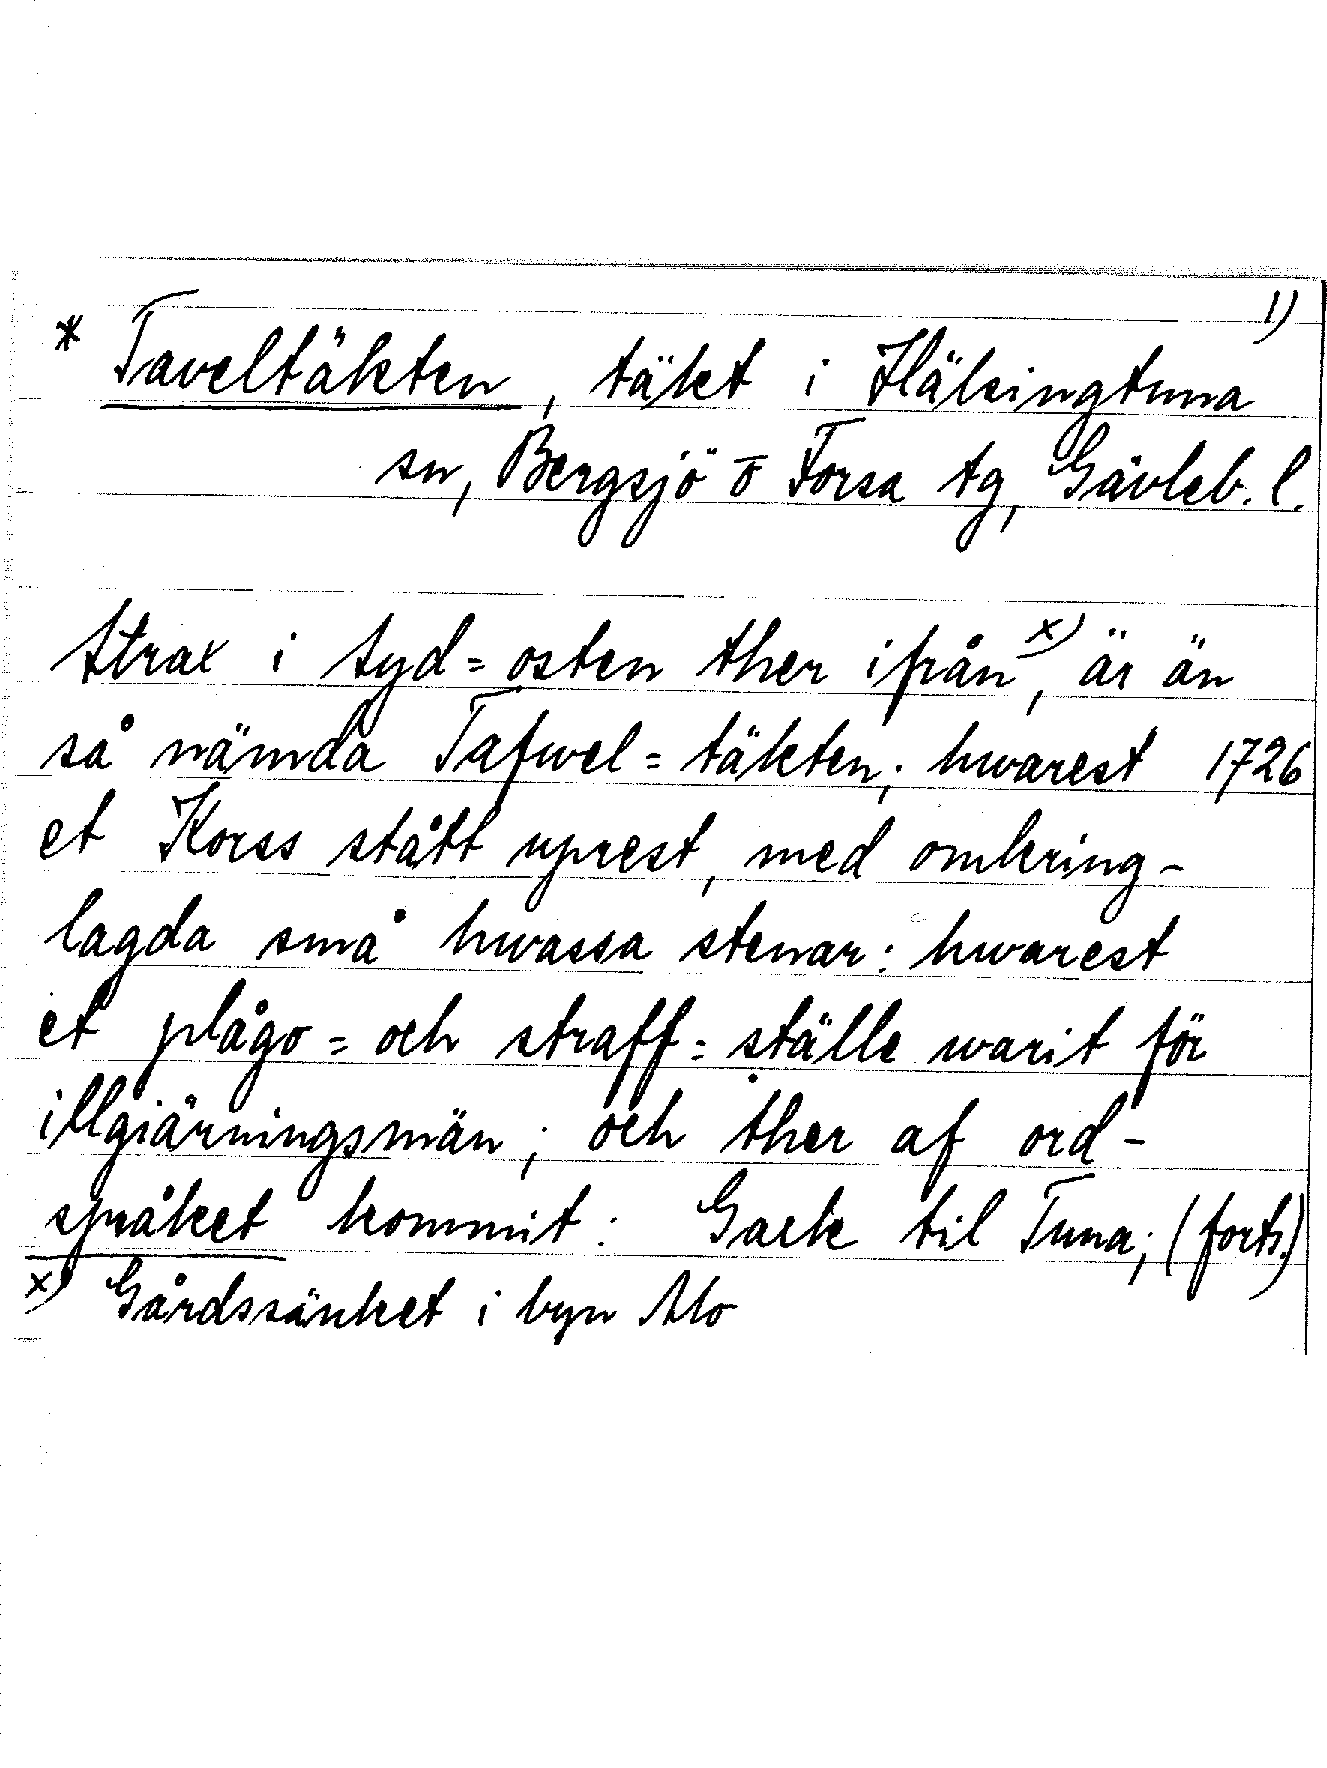 1)
* Taveltäkten, täkt i Hälsingtuna
sn, Bergsjö o Forsa tg, Gävleb. l.
Strax i Syd=osten ther ifrån x), är än
så nämda Tafwel=täkten; hwarest 1726
et Korss stått uprest, med omkring-
lagda små hwassa stenar: hwarest
et plågo= och straff=ställe warit för
illgiärningsmän; och ther af ord-
språket kommit: Gack til Tuna; (forts.)
x) Gårdssänket i byn Mo